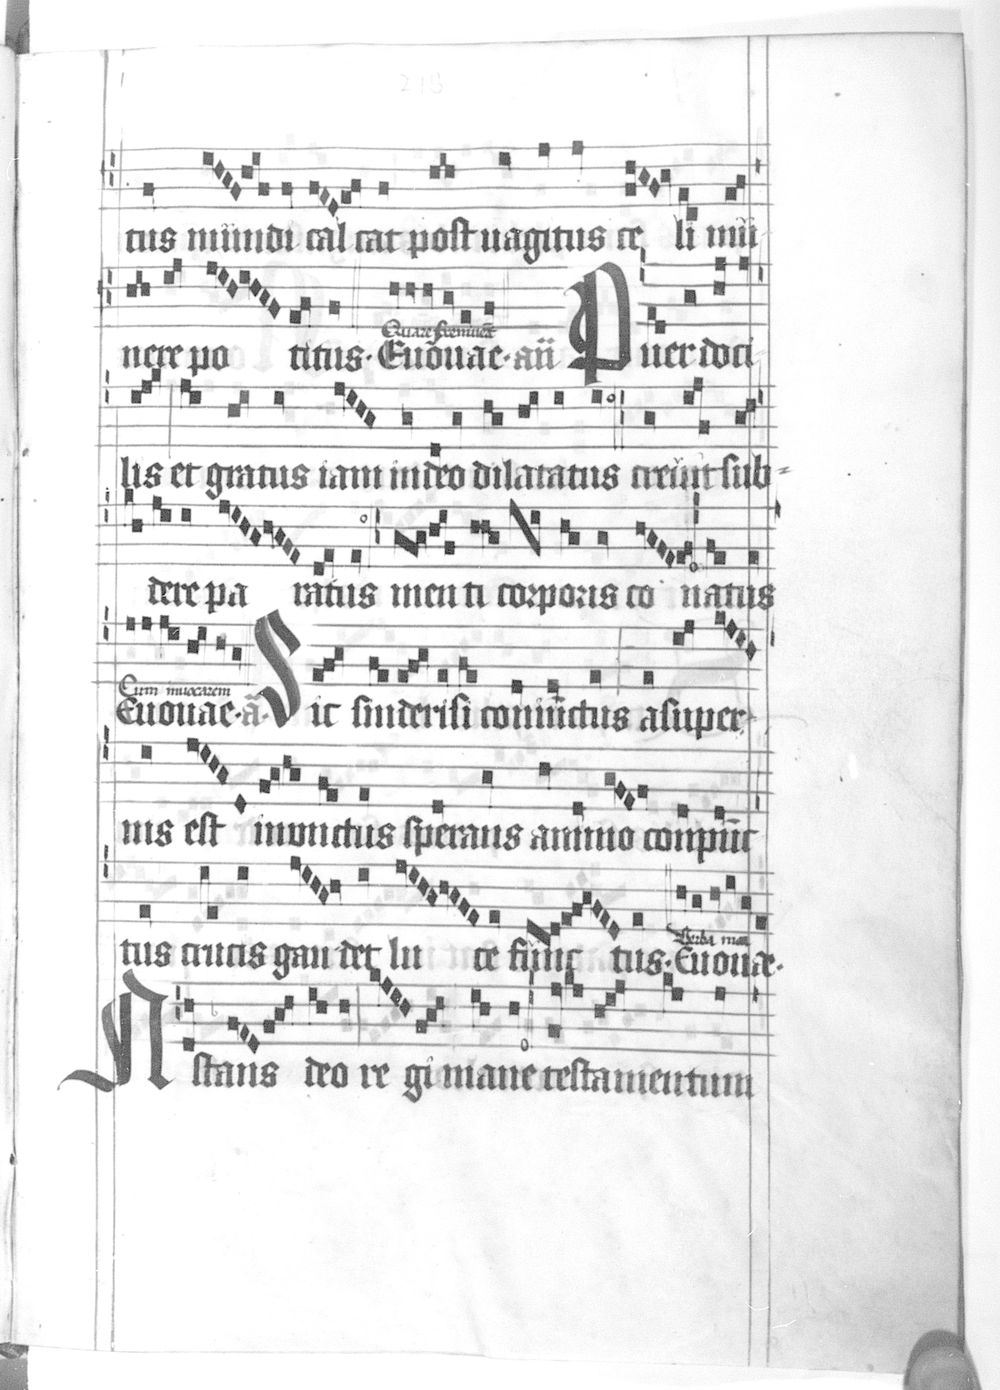 218
tus mundi cal cat post uagitus ce li mū
Quare fremuerūt
nere po titus. Euouae. añ Puer doci
lis et gratus iam in deo dilatatus creuit sub
dere pa ratus menti corporis co natus
Cum inuocarem
Euouae. a. Sic sinderisi coniūctus a super
nis est inunctus sperans animo conpūc
Verba mea
tus crucis gau det lu ce fūnc tus. Euouae.
Astans deo re gi mane testamentum